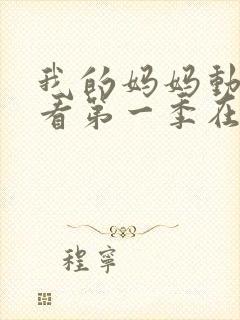 我的妈妈動
看第一季在
程寧